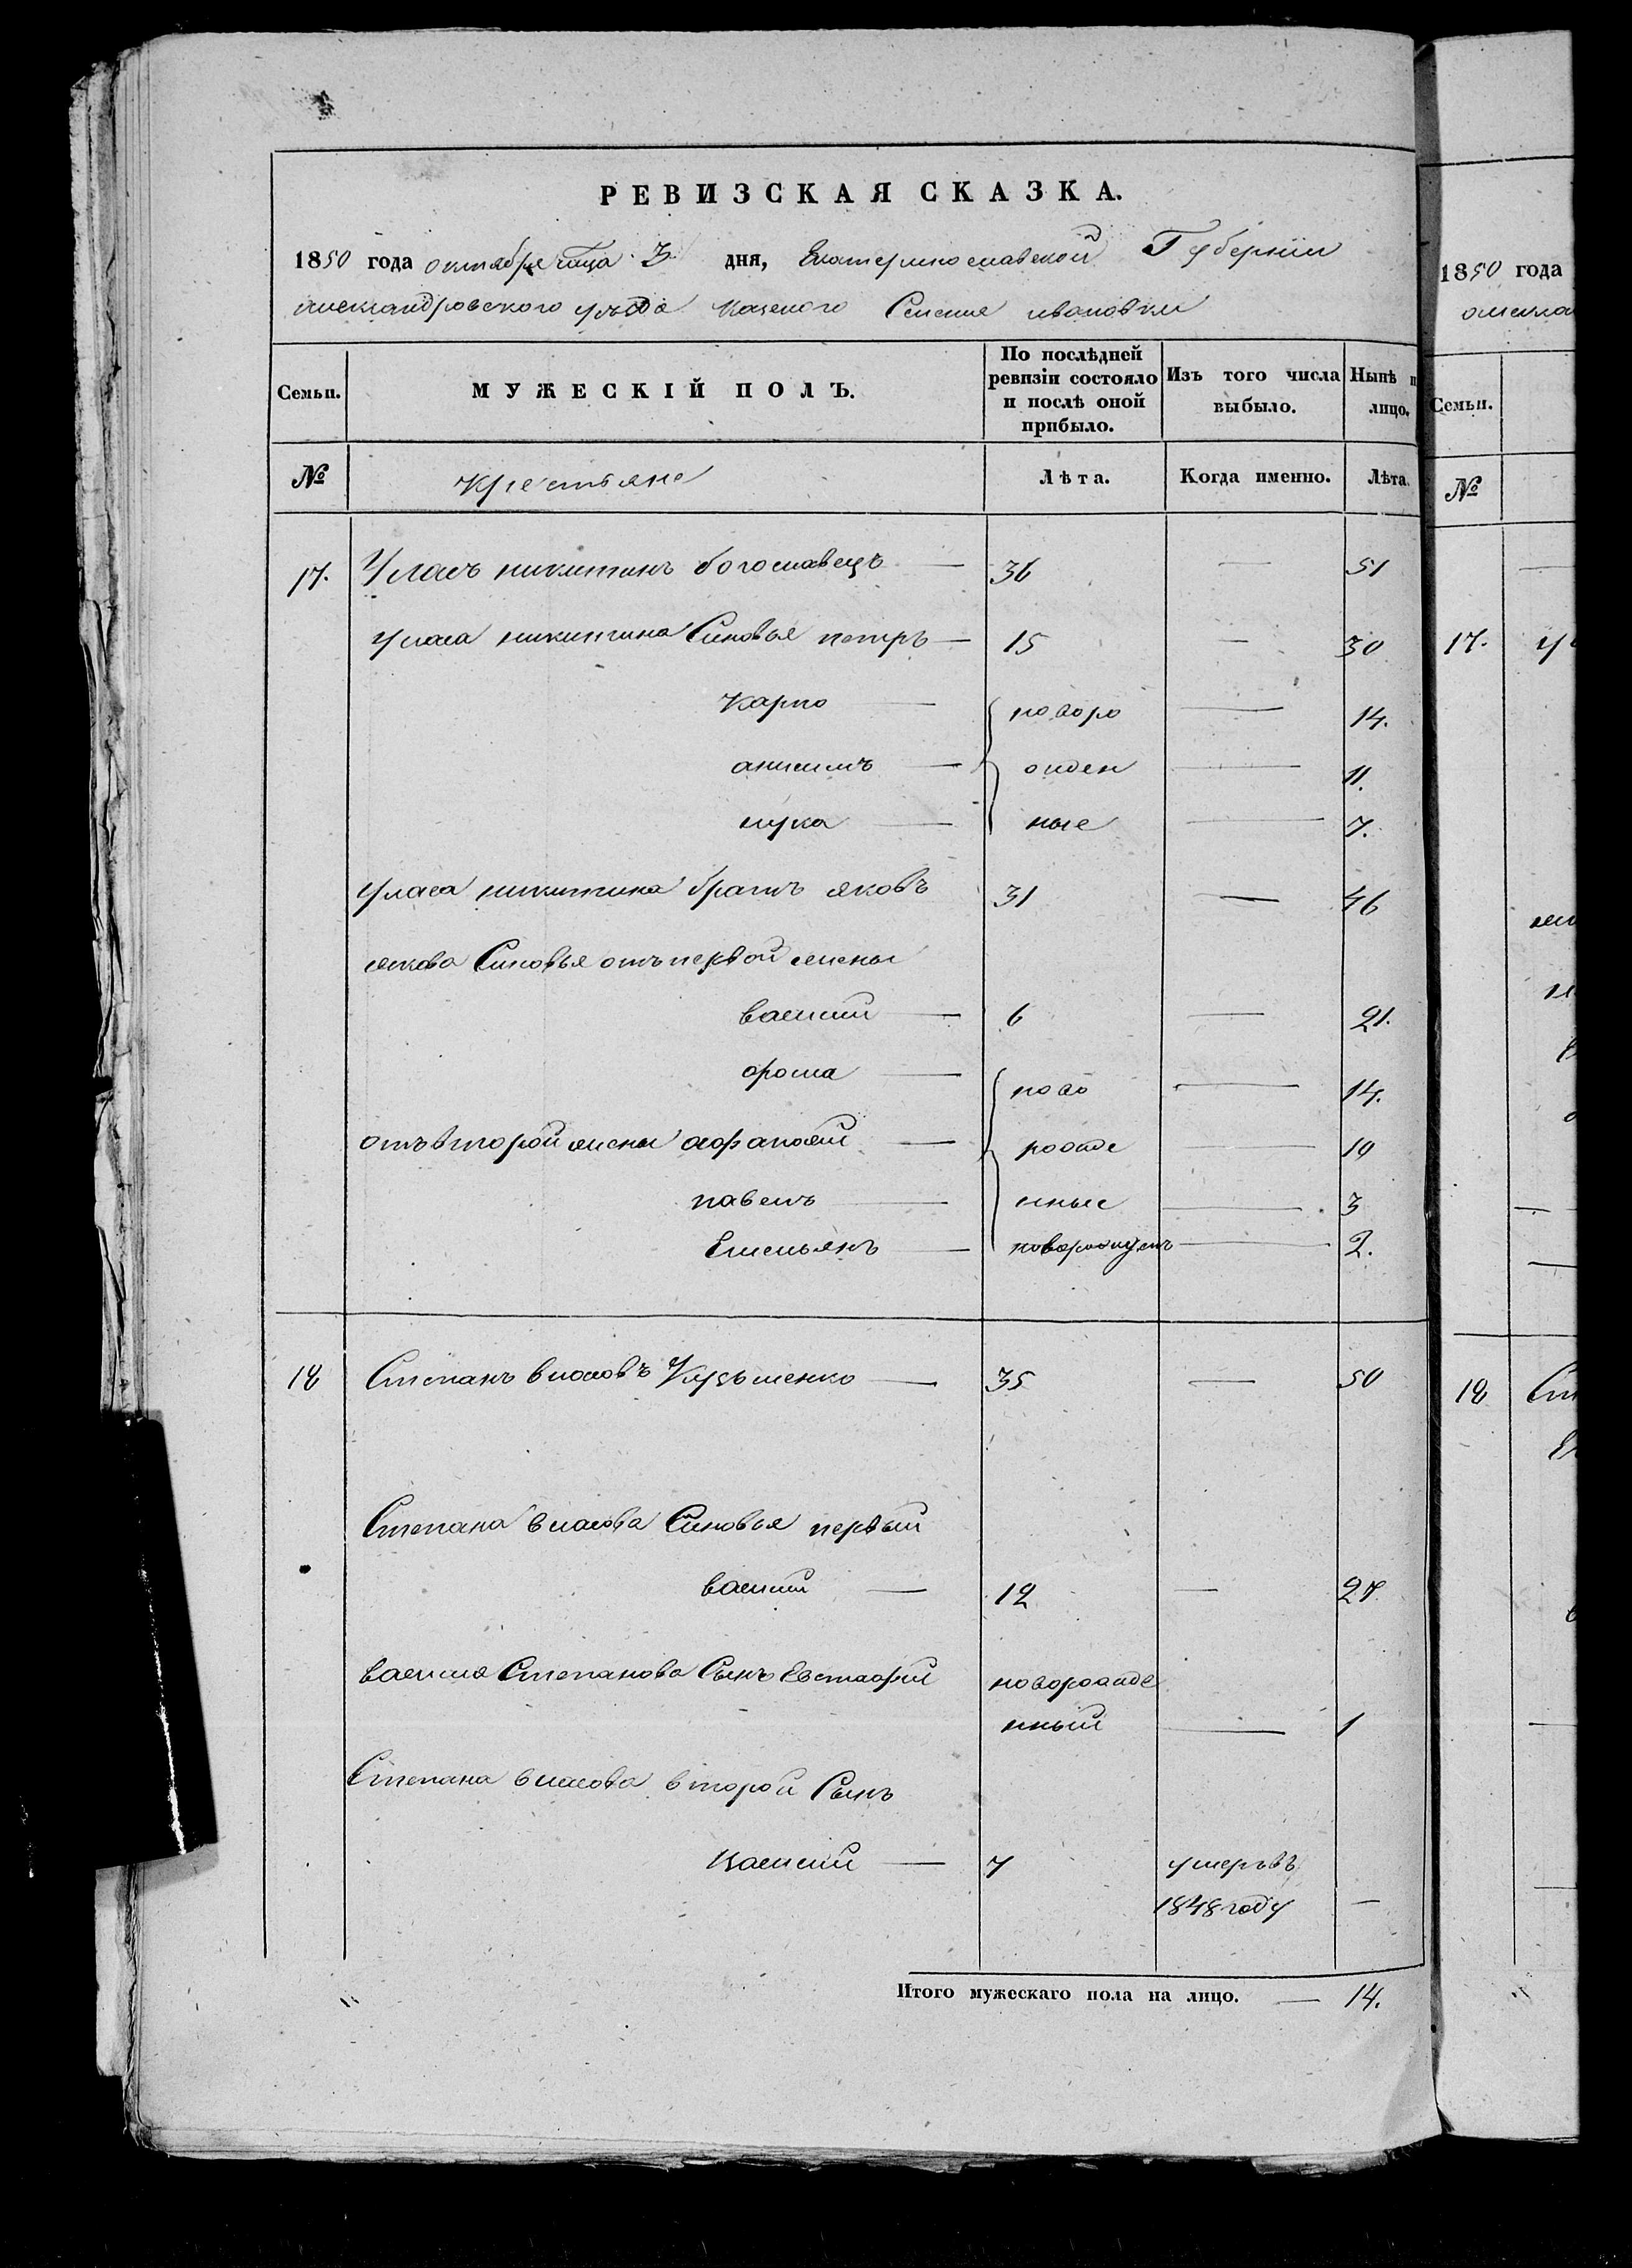 РЕВИЗСКАЯ СКАЗКА.
1850 года октября мца 3 дня, Екатеринославской Губернии
александровского уъзда казеного Селение ивановки
Семьи.
МУЖЕСКІЙ ПОЛЪ.
По послѣдней ревизіи состояло и послѣ оной прибыло.
Изъ того числа выбыло.
Нынѣ н
лицо.
№
Крестьяне
Лѣта.
Когда именно.
Лѣта.
17. Уласъ никитинъ богославецъ — 36 — 51
Уласа никитина Синовья петръ — 15 — 30
Карпо — новоро — 14.
анисимъ — жден — 11.
лука — ные — 7.
Уласа никитина братъ яковъ 31 — 46
якова Синовья отъ первой жены
василий — 6 — 21.
фома — ново — 14.
отъ второй жены афанасий — рожде — 10
павелъ — нные — 3
Емельянъ — — 2.
18 Степанъ власовъ Кузьменко — 35 — 50
Степана власова Синовья первый
василий — 12 — 27
василия Степанова Сынъ Евстафий новорожде
нный — 1
Степана власова второй Сынъ
Василий — 7 умеръ въ
1848 году —
Итого мужескаго пола на лицо. — 14.
1850 года
Семьи.
№
17.
18